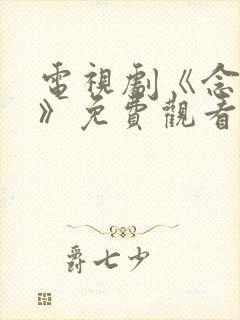 電視劇《念
》免費觀看
爵七少